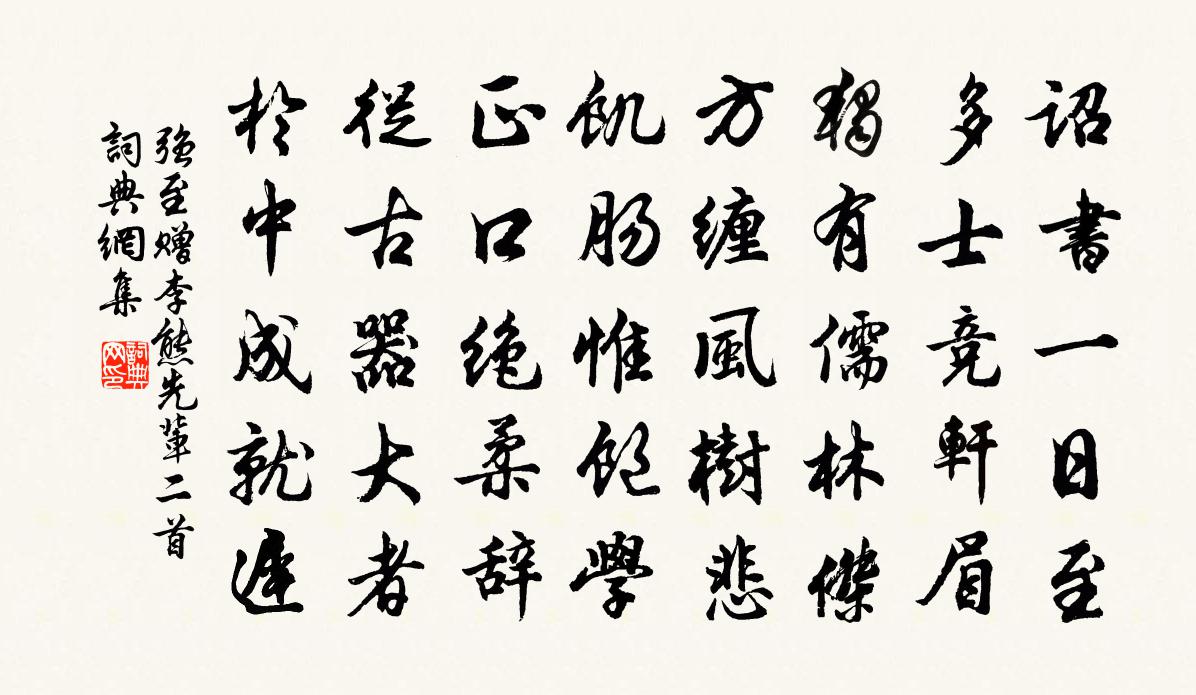 詔書一日至
多士竞軒眉
獨有儒林傑
方纏風樹悲
飢腸惟飽學
正口绝柔辞
從古器大者
於中成就遲
强至赠李熊先輩二首
詞典網集
詞典
网印